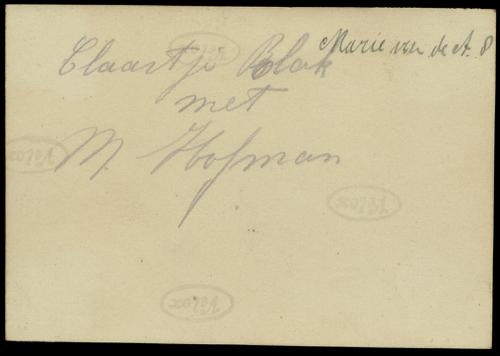 Claartje Blok
met
M. Hofman
Marie van de A. 8
Velox
Velox
Velox
Velox